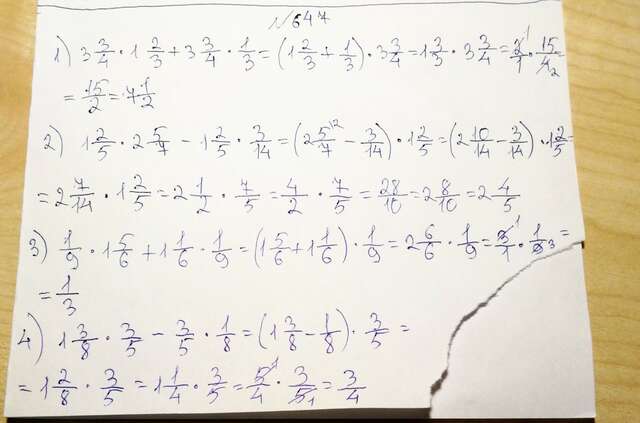 №647
1) 3 3/4 · 1 2/3 + 3 3/4 · 1/3 = (1 2/3 + 1/3) · 3 3/4 = 1 3/3 · 3 3/4 = 2/1 · 15/4 =
= 15/2 = 7 1/2
2) 1 2/5 · 2 5/7 - 1 2/5 · 3/14 = (2 5/7 - 3/14) · 1 2/5 = (2 10/14 - 3/14) · 1 2/5 =
= 2 7/14 · 1 2/5 = 2 1/2 · 7/5 = 4/2 · 7/5 = 28/10 = 2 8/10 = 2 4/5
3) 1/9 · 1 5/6 + 1 1/6 · 1/9 = (1 5/6 + 1 1/6) · 1/9 = 2 6/6 · 1/9 = 3/1 · 1/9 =
= 1/3
4) 1 3/8 · 3/5 - 3/5 · 1/8 = (1 3/8 - 1/8) · 3/5 =
= 1 2/8 · 3/5 = 1 1/4 · 3/5 = 5/4 · 3/5 = 3/4